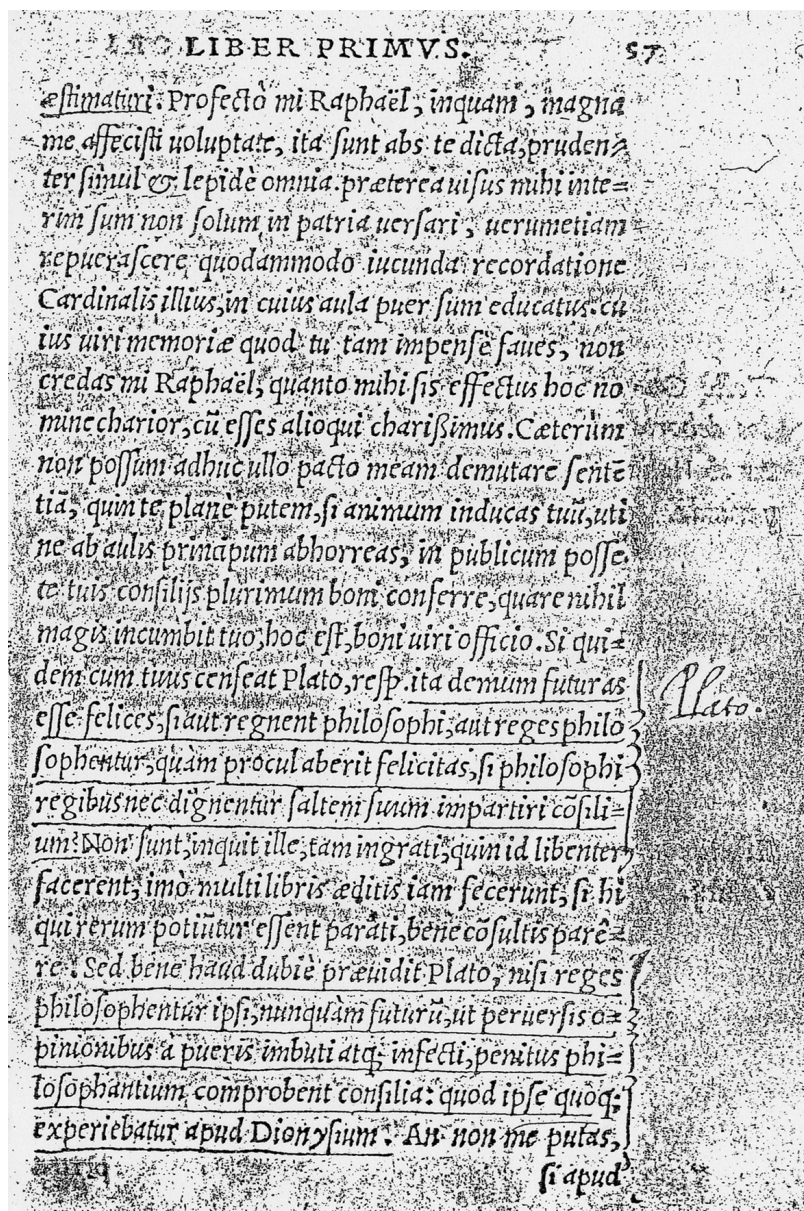 LIBER PRIMVS. 57
æstimaturi. Profectò mi Raphaël, inquam, magna
me affecisti uoluptate, ita sunt abs te dicta, pruden-
ter simul & lepidè omnia. prætereà uisus mihi inte-
rim sum non solum in patria uersari, uerumetiam
repuerascere quodammodo iucunda recordatione
Cardinalis illius, in cuius aula puer sum educatus. cu
ius uiri memoriæ quod tu tam impensè faues, non
credas mi Raphaël, quanto mihi sis effectus hoc no
mine charior, cũ esses alioqui charißimus. Cæterùm
non possum adhuc ullo pacto meam demutare sentẽ
tiã, quin te planè putem, si animum inducas tuũ, uti
ne ab aulis principum abhorreas, in publicum posse
te tuis consilijs plurimum boni conferre, quare nihil
magis incumbit tuo, hoc est, boni uiri officio. Si qui-
dem cum tuus censeat Plato, resp. ita demum futuras
esse felices, si aut regnent philosophi, aut reges philo
sophentur, quàm procul aberit felicitas, si philosophi
regibus nec dignentur saltem suum impartiri cõsili-
um? Non sunt, inquit ille, tam ingrati, quin id libenter
facerent, imò multi libris æditis iam fecerunt, si hi
qui rerum potiũtur essent parati, bene cõsultis parê-
re. Sed bene haud dubiè præuidit Plato, nisi reges
philosophentur ipsi, nunquàm futurũ, ut peruersis o-
pinionibus à pueris imbuti atq; infecti, penitus phi-
losophantium comprobent consilia: quod ipse quoq;
experiebatur apud Dionysium. An non me putas,
si apud
Plato.